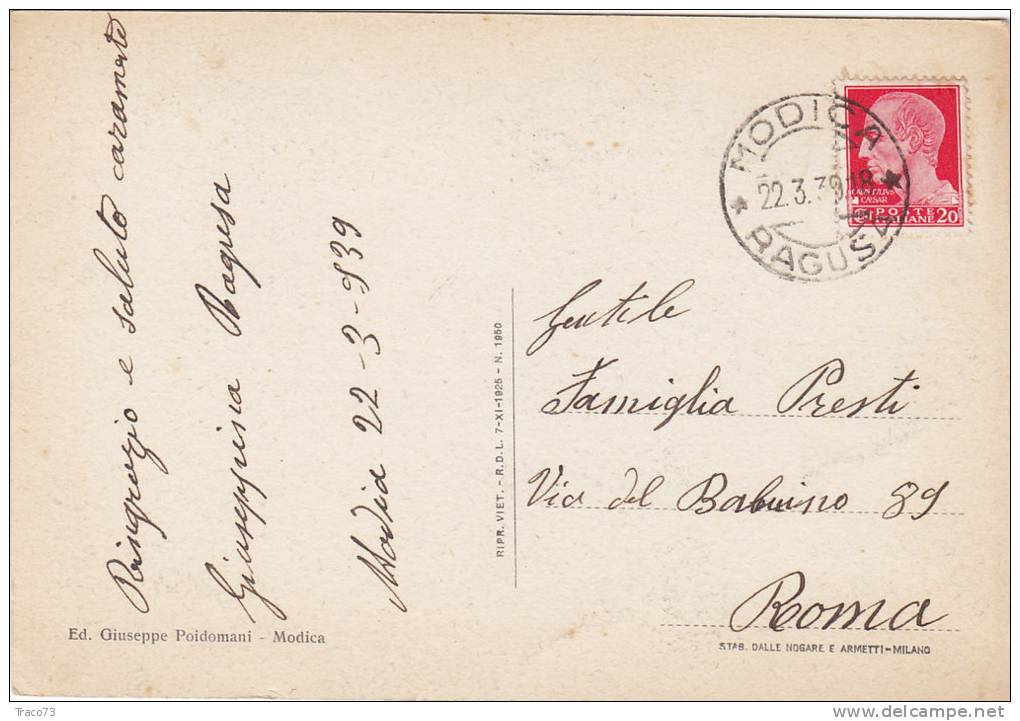 Ringrazio e saluto caramente
Giuseppina Ragusa
Modica 22-3-939
Ed. Giuseppe Poidomani - Modica
RIPR. VIET. - R.D.L. 7-XI-1925 - N. 1950
MODICA
22.3.39.18
RAGUSA
CAESAR
POSTE
20
Gentile
Famiglia Presti
Via del Babuino 89
Roma
STAB. DALLE NOGARE E ARMETTI-MILANO
Traco73